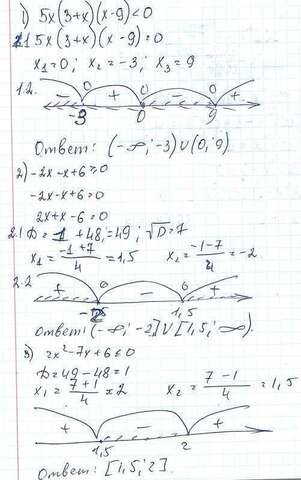 1) 5x(3+x)(x-9)<0
1.1 5x(3+x)(x-9)=0
x₁=0; x₂=-3; x₃=9
1.2. - 0 + 0 - 0 +
-3 0 9
Ответ: (-∞;-3)∪(0;9)
2) -2x-x+6≥0
-2x-x+6=0
2x+x-6=0
2.1 D=1+48=49; √D=7
x₁=(-1+7)/4=1,5 x₂=(-1-7)/4=-2
2.2 + 0 - 0 +
-2 1,5
Ответ: (-∞;-2]∪[1,5;∞).
3) 2x²-7x+6≤0
D=49-48=1
x₁=(7+1)/4=2 x₂=(7-1)/4=1,5
+ - +
1,5 2
Ответ: [1,5;2].